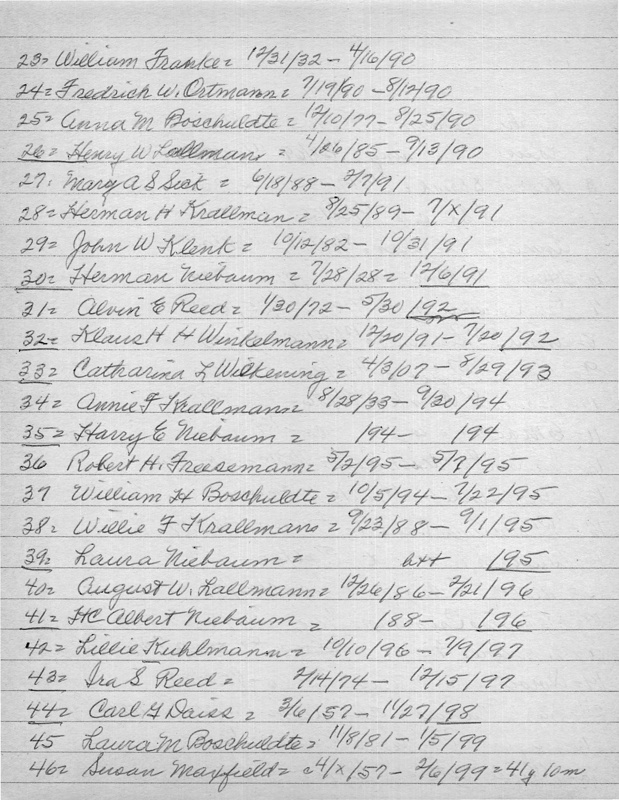 23= William Franke = 12/31/32 - 4/16/90
24= Fredrich W. Ortmann = 7/19/90 - 8/12/90
25= Anna M Boschuldte = 12/10/77 - 8/25/90
26= Henry W Lallmann = 4/26/85 - 9/13/90
27= Mary A S Sick = 6/18/88 - 2/7/91
28= Herman H Krallman = 8/25/89 - 7/x/91
29= John W Klenk = 10/12/82 - 10/31/91
30= Herman Niebaum = 7/28/28 = 12/6/91
31= Alvin E Reed = 1/30/72 - 5/30/92
32= Klaus H H Winkelmann = 12/20/91 - 7/20/92
33= Catharina L Wilkening = 4/3/07 - 8/29/93
34= Annie F Krallmann = 8/28/33 - 9/30/94
35= Harry E Niebaum = /94 - /94
36 Robert H. Freesemann = 5/2/95 - 5/7/95
37 William H Boschuldte = 10/5/94 - 7/22/95
38= Willie F Krallmann = 9/23/88 - 9/1/95
39= Laura Niebaum = /95
40= August W. Lallmann = 12/26/86 - 2/21/96
41= HC Albert Niebaum = /88 - /96
42= Lillie Kuhlmann = 10/10/96 - 7/9/97
43= Ira S Reed = 2/14/74 - 12/15/97
44= Carl G Daiss = 3/6/57 - 11/27/98
45 Laura M Boschuldte = 11/8/81 - 1/5/99
46= Susan Maxfield = 4/x/57 - 2/6/99 = 41y 10m